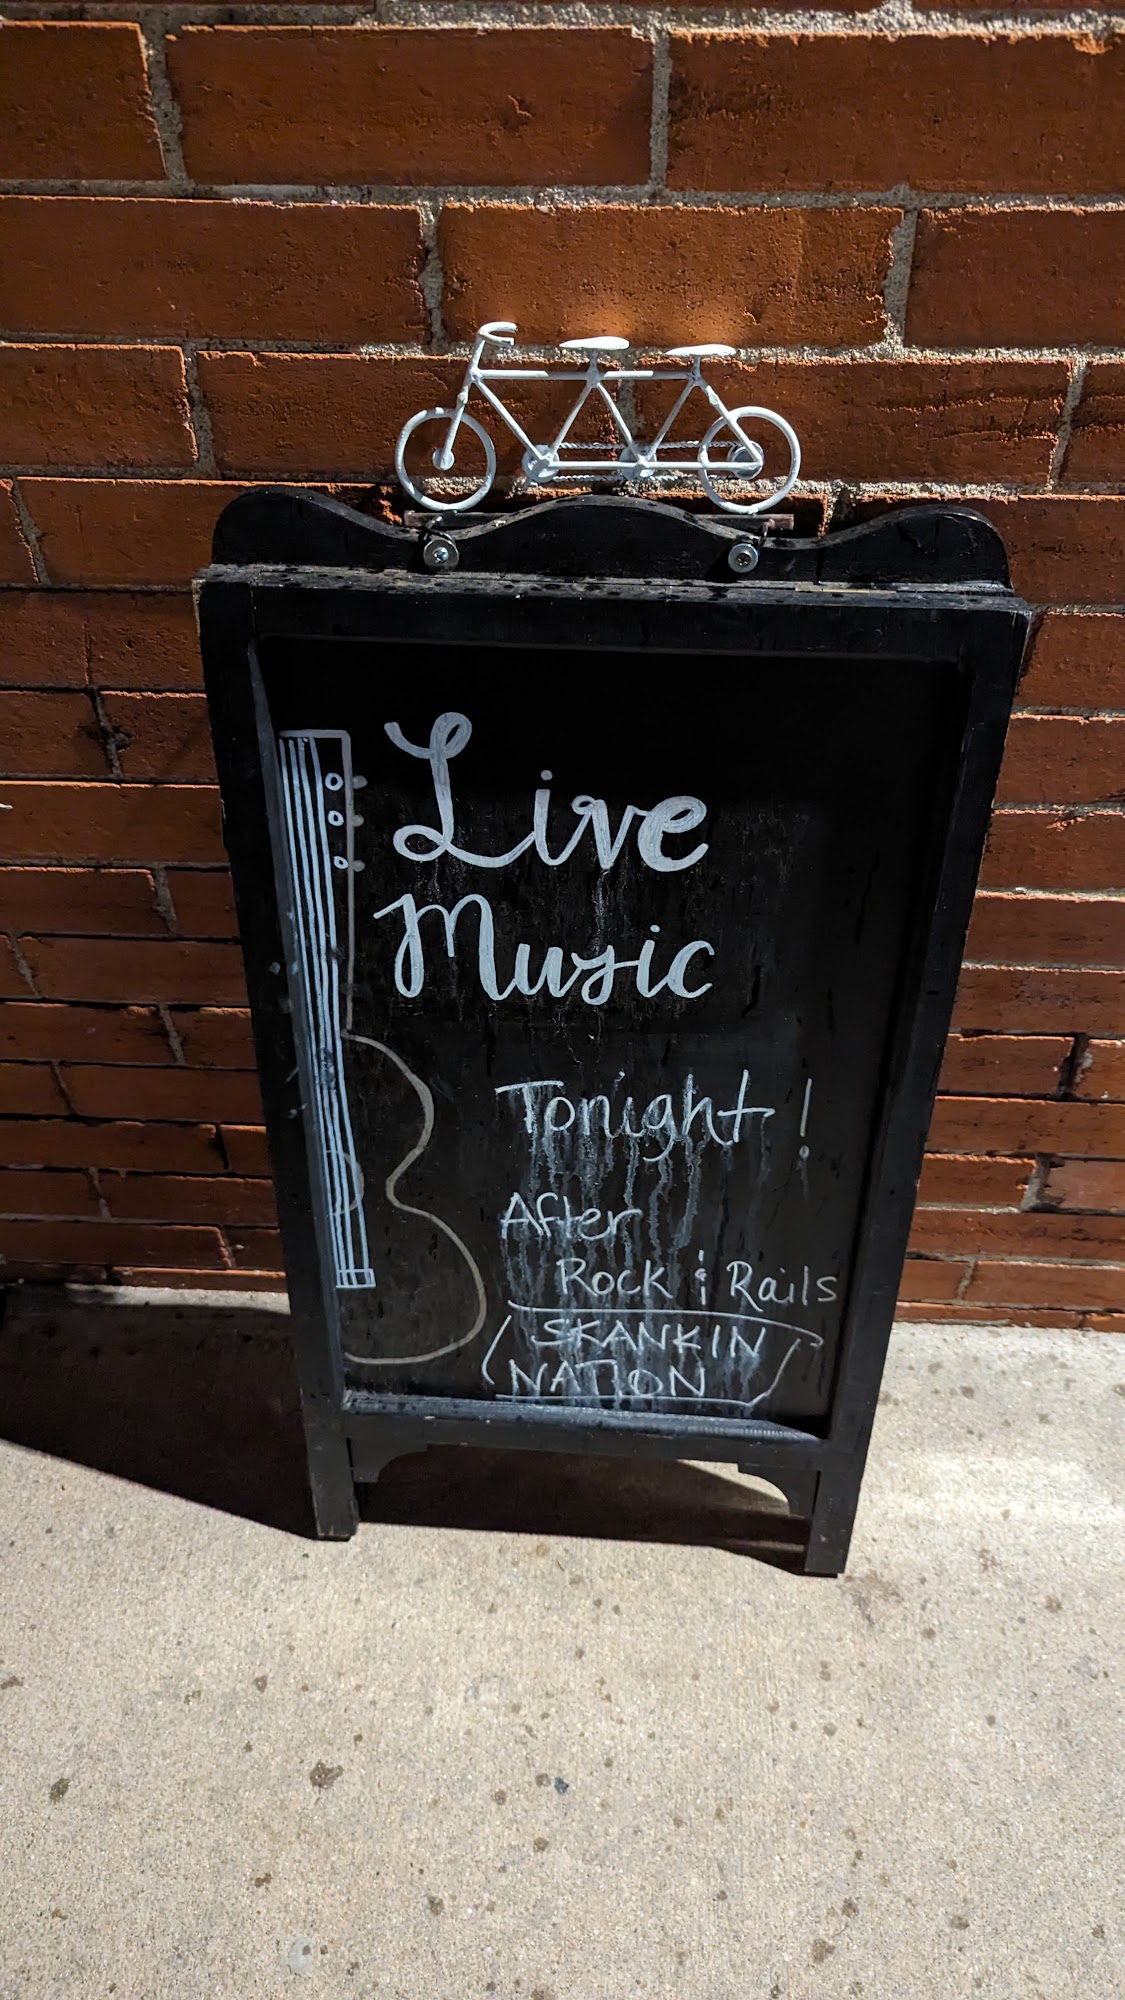 Live
Music
Tonight!
After
Rock & Rails
SKANKIN
NATION